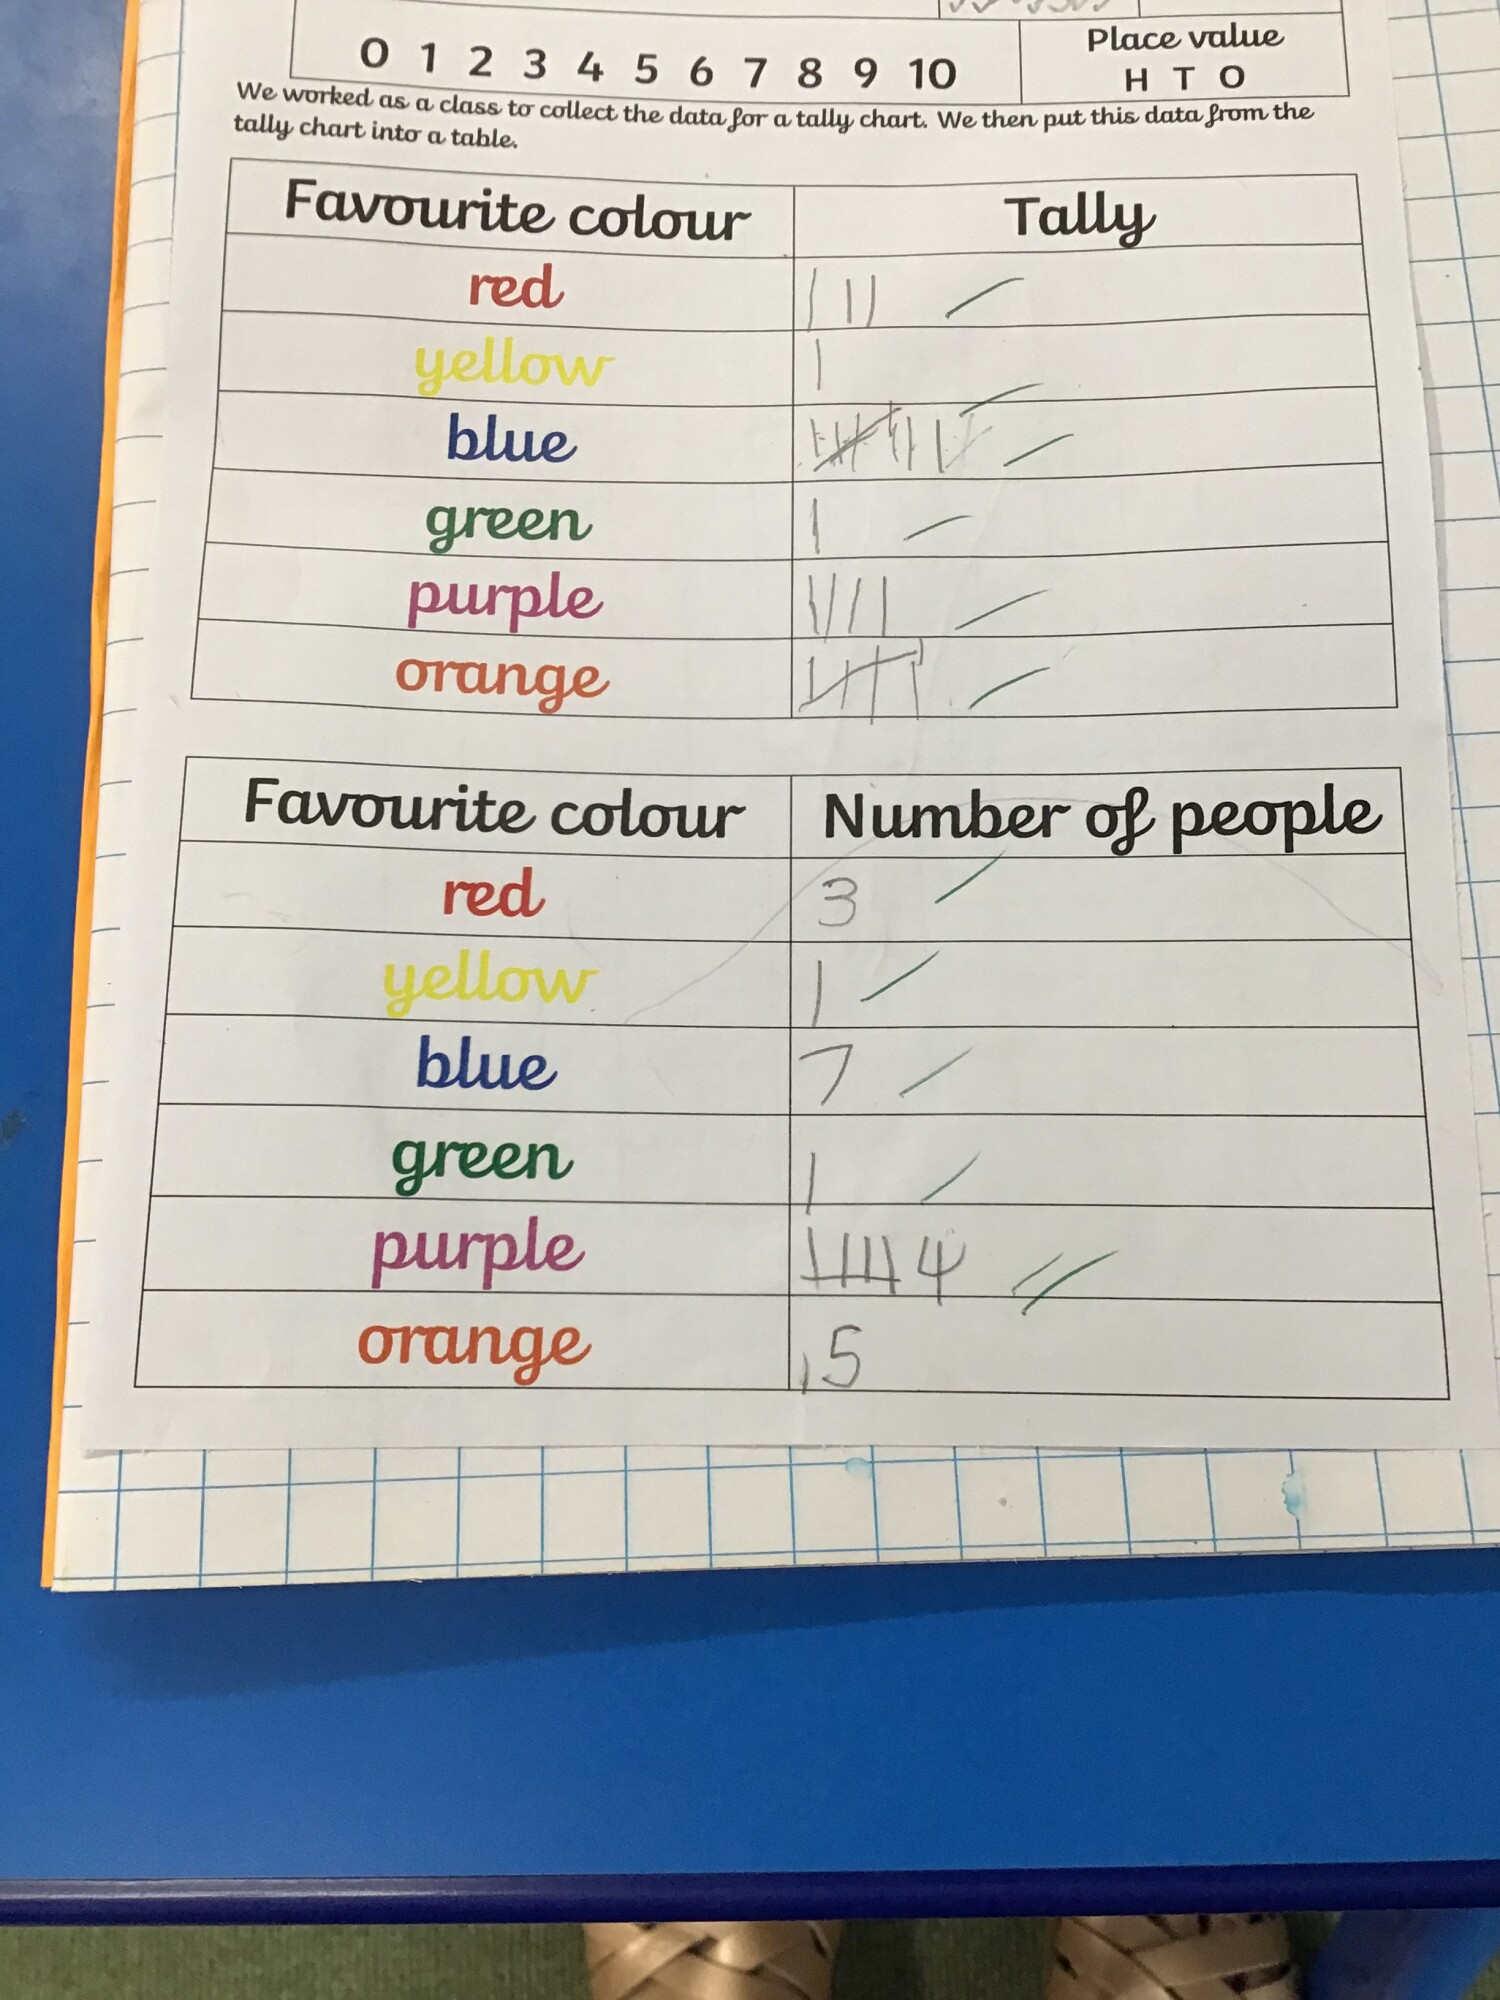 0 1 2 3 4 5 6 7 8 9 10
Place value
H T O
We worked as a class to collect the data for a tally chart. We then put this data from the
tally chart into a table.
Favourite colour Tally
red
yellow
blue
green
purple
orange
Favourite colour Number of people
red 3
yellow 1
blue 7
green 1
purple 4
orange 5